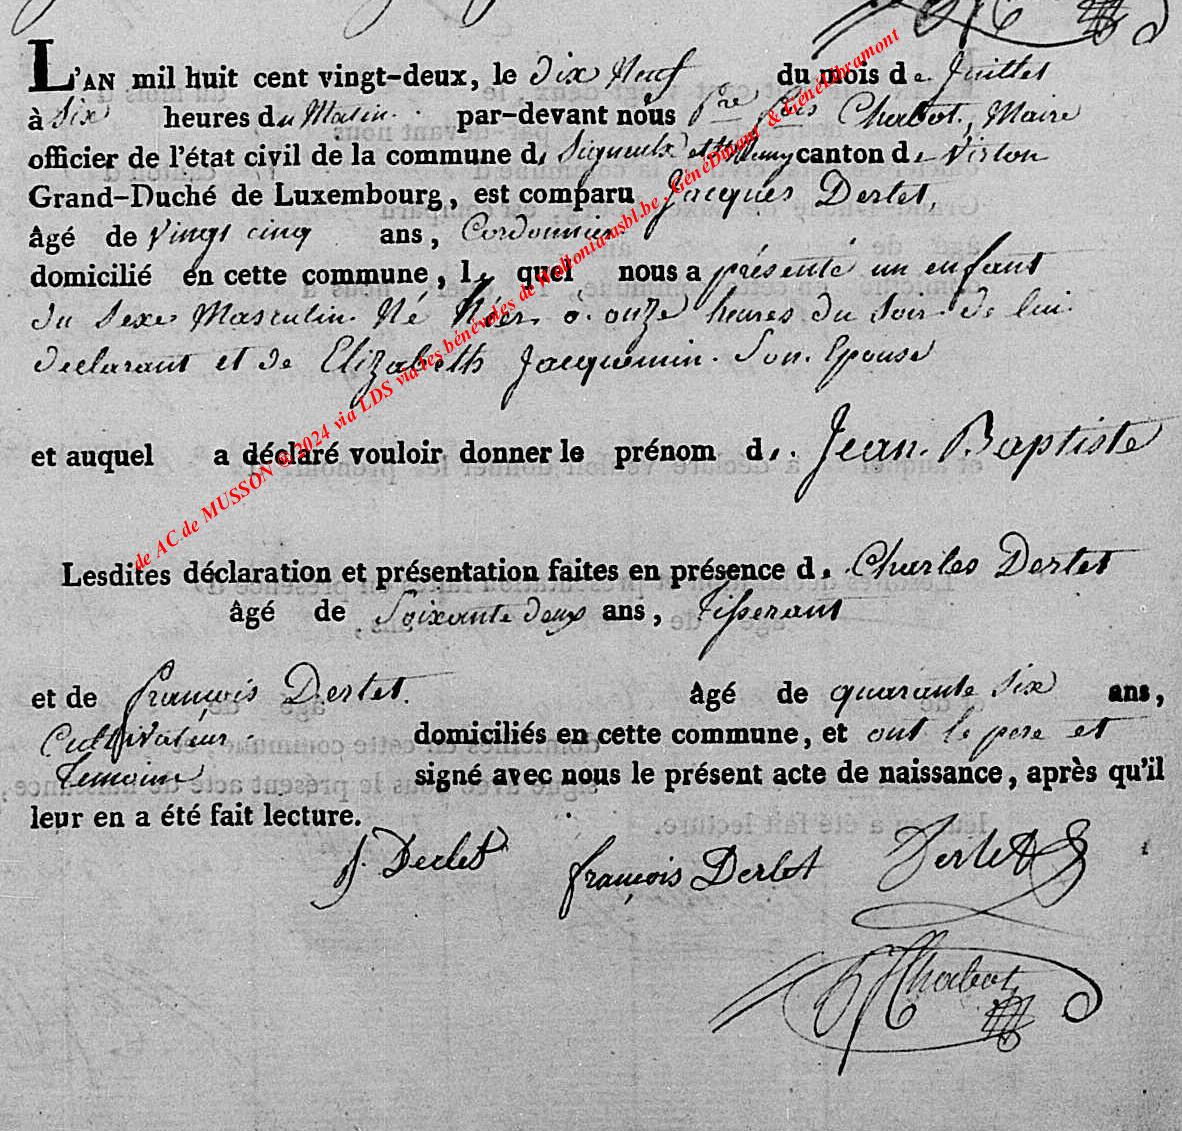 L'AN mil huit cent vingt-deux, le dix Neuf du mois de Juillet
à Six heures du Matin. par-devant nous Pre fois Chabot, Maire
officier de l'état civil de la commune de Signeulx et canton de Virton
Grand-Duché de Luxembourg, est comparu Jacques Derlet,
âgé de vingt cinq ans, Cordonnier
domicilié en cette commune, le quel nous a présenté un enfant
du Sexe Masculin. Né hier, à onze heures du Soir de lui
declarant et de Elizabeth Jacquemin. Son Epouse
et auquel a déclaré vouloir donner le prénom de. Jean. Baptiste
Lesdites déclaration et présentation faites en présence de. Charles Derlet
âgé de Soixante deux ans, Tisserant
et de François Derlet. âgé de quarante Six ans,
Cultivateur. domiciliés en cette commune, et ont le pere et
Temoins signé avec nous le présent acte de naissance, après qu'il
leur en a été fait lecture.
J. Derlet François Derlet Derlet
Chabot
de AC de MUSSON @ 2024 via LDS via les bénévoles de Wallonia-asbl.be, GénéDinant & GénéLibramont